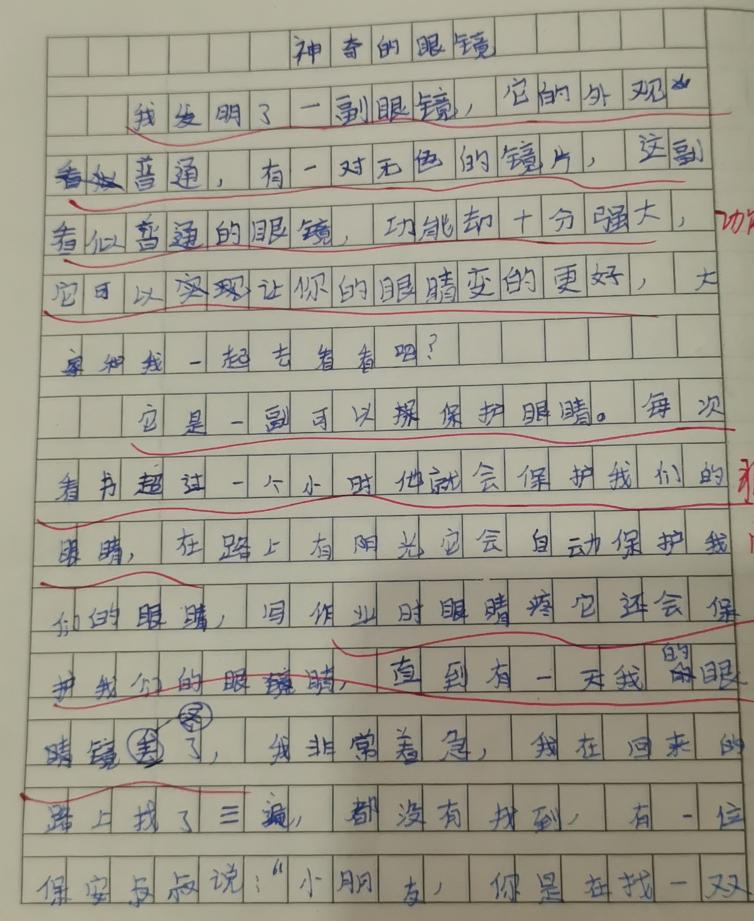 神奇的眼镜
我发明了一副眼镜，它的外观
看似普通，有一对无色的镜片，这副
看似普通的眼镜，功能却十分强大，
功
它可以实现让你的眼睛变的更好，大
家和我一起去看看吧？
它是一副可以保护眼睛。每次
看书超过一个小时他就会保护我们的
眼睛，在路上有阳光它会自动保护我
们的眼睛，写作业时眼睛疼它还会保
护我们的眼睛，直到有一天我的眼
睛镜丢了，我非常着急，我在回来的
路上找了三遍，都没有找到，有一位
保安叔叔说：“小朋友，你是在找一双